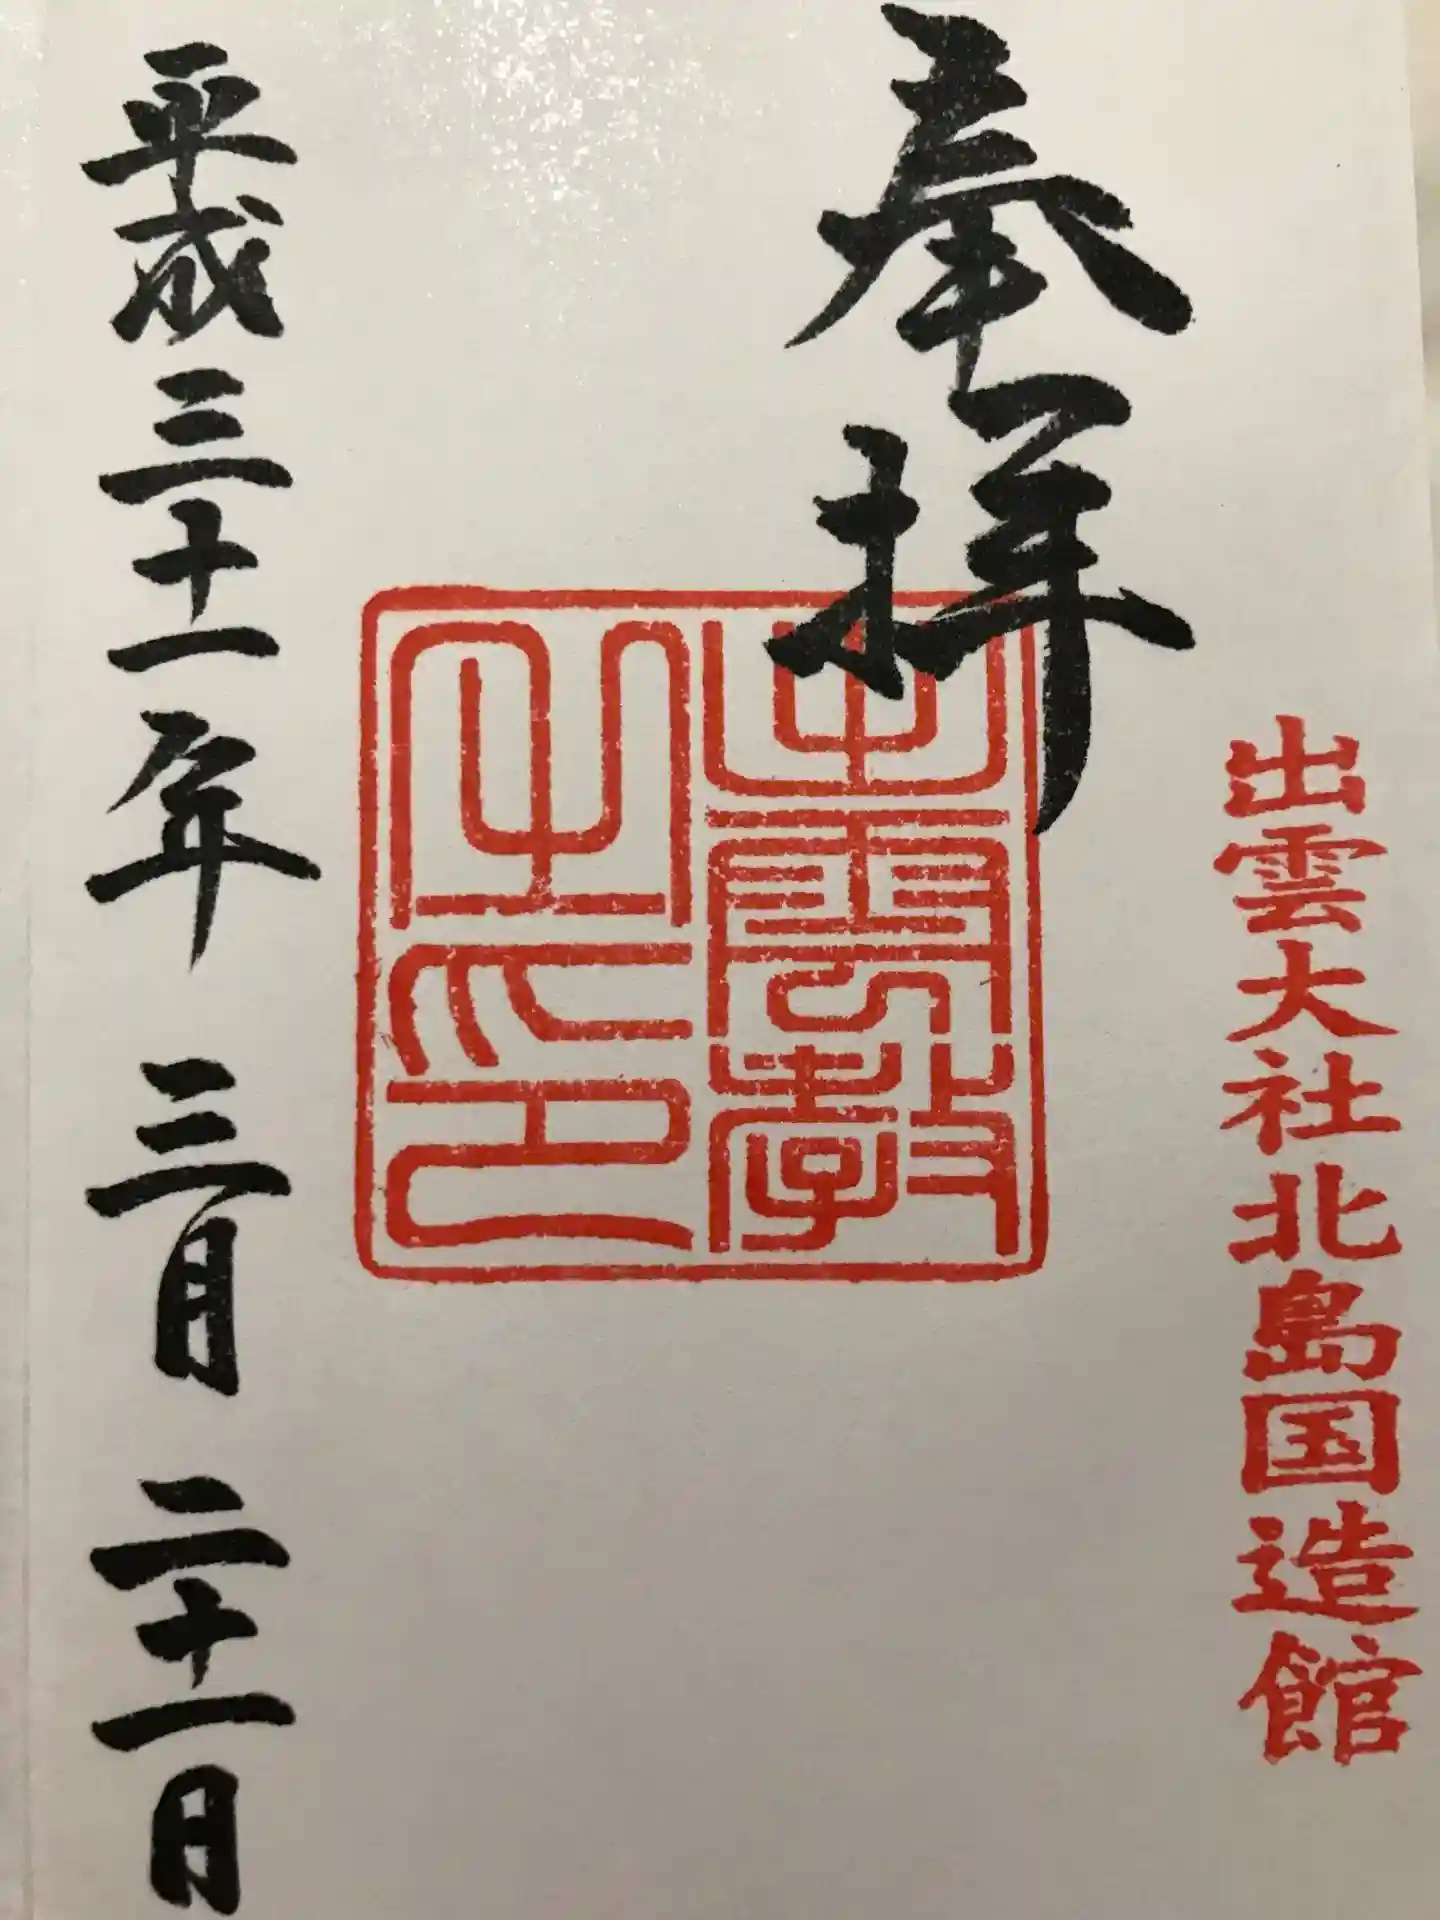 奉拝
出雲大社北島国造館
出雲教
之印
平成三十一年 三月 二十一日